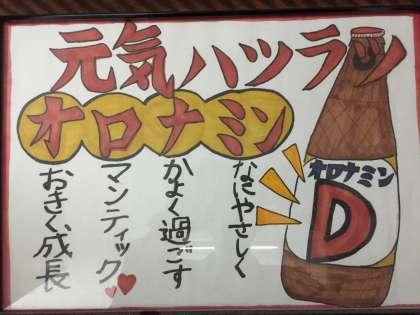 元気ハツラツ
オロナミン
おきく成長
マンティック
かよく過ごす
なにやさしく
オロナミン
D